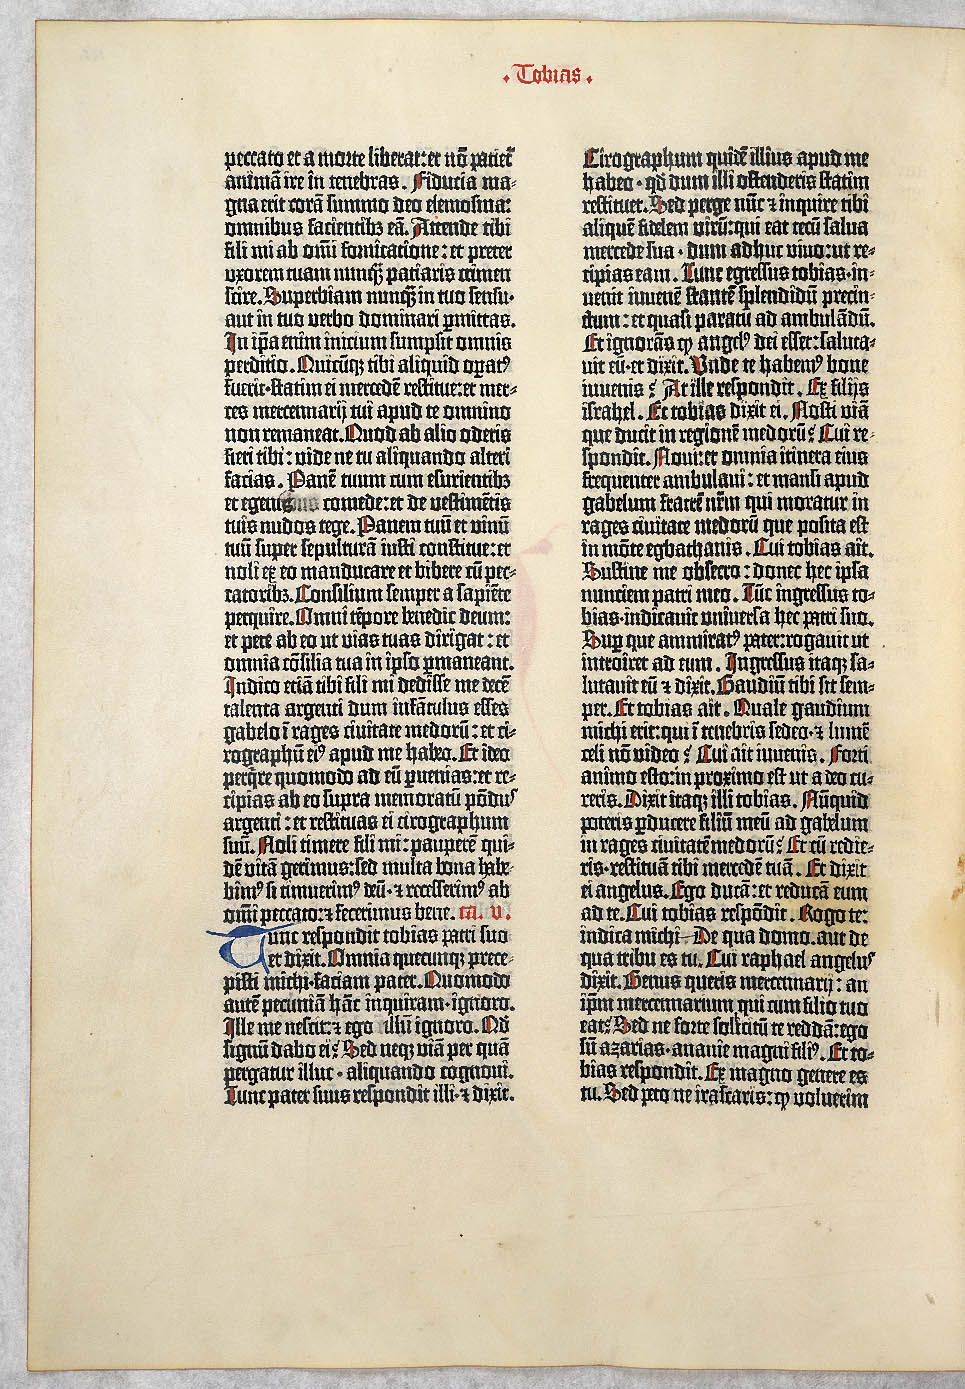 Tobias
peccato et a morte liberat: et nō patiet᷑
animā ire in tenebras. Fiducia ma-
gna erit corā summo deo elemosina:
omnibus facientibꝫ eā. Attende tibi
fili mi ab om̄i fornicatione: et preter
uxorem tuam nunqꝫ patiaris crimen
scire. Superbiam nunqꝫ in tuo sensu·
aut in tuo verbo dominari ꝑmittas.
In ip̄a enim inicium sumpsit omnis
perditio. Quicūqꝫ tibi aliquid oꝑatꝰ
fuerit·statim ei mercedē restitue: et mer-
ces mercennarij tui apud te omnino
non remaneat. Quod ab alio oderis
fieri tibi: vide ne tu aliquando alteri
facias. Panē tuum cum esurientibꝫ
et egenis comede: et de vestimētis
tuis nudos tege. Panem tuū et vinū
tuū super sepulturā iusti constitue: et
noli ex eo manducare et bibere cū pec-
catoribꝫ. Consilium semper a sapiēte
perquire. Omni tēpore benedic deum:
et pete ab eo ut vias tuas dirigat: et
omnia cōsilia tua in ipso ꝑmaneant.
Indico etiā tibi fili mi dedisse me decē
talenta argenti dum infātulus esses
gabelo ī rages civitate medorū: et ci-
rographū eiꝰ apud me habeo. Et ideo
perq̄re quomodo ad eū ꝑvenias: et re-
cipias ab eo supra memoratū pōdus
argenti: et restituas ei cirographum
suū. Noli timere fili mi: pauperē qui-
dē vitā gerimus: sed multa bona habe-
bimꝰ si timuerimꝰ deū·⁊ recesserimꝰ ab
om̄i peccato: ⁊ fecerimus bene. ca. v.
Tunc respondit tobias patri suo
et dixit. Omnia quecunqꝫ prece-
pisti michi·faciam pater. Quomodo
autē pecuniā hāc inquiram·ignoro.
Ille me nescit: ⁊ ego illū ignoro. Qd̄
signū dabo ei? Sed neqꝫ viā per quā
pergatur illuc·aliquando cognovi.
Tunc pater suus respondit illi·⁊ dixit.
Cirographum quidē illius apud me
habeo·qd̄ dum illi ostenderis statim
restituet. Sed perge nūc ⁊ inquire tibi
aliquē fidelem virū: qui eat tecū salva
mercede sua·dum adhuc vivo: ut re-
cipias eam. Tunc egressus tobias·in-
venit iuvenē stantē splendidū precin-
ctum: et quasi paratū ad ambulādū.
Et ignorās ꝙ angelꝰ dei esset: saluta-
vit eū·et dixit. Unde te habemꝰ bone
iuvenis? At ille respondit. Ex filijs
israhel. Et tobias dixit ei. Nosti viā
que ducit in regionē medorū? Cui re-
spondit. Novi: et omnia itinera eius
frequenter ambulavi: et mansi apud
gabelum fratrē nr̄m qui moratur in
rages civitate medorū que posita est
in mōte egbathanis. Cui tobias ait.
Sustine me obsecro: donec hec ipsa
nunciem patri meo. Tūc ingressus to-
bias·indicavit universa hec patri suo.
Suꝑ que ammiratꝰ pater: rogavit ut
introiret ad eum. Ingressus itaqꝫ sa-
lutavit eū ⁊ dixit. Gaudiū tibi sit sem-
per. Et tobias ait. Quale gaudium
michi erit: qui ī tenebris sedeo·⁊ lumē
celi nō video? Cui ait iuvenis. Forti
animo esto: in proximo est ut a deo cu-
reris. Dixit itaqꝫ illi tobias. Nūquid
poteris ꝑducere filiū meū ad gabelum
in rages civitatē medorū? Et cū redie-
ris·restituā tibi mercedē tuā. Et dixit
ei angelus. Ego ducā: et reducā eum
ad te. Cui tobias respōdit. Rogo te:
indica michi. De qua domo. aut de
qua tribu es tu. Cui raphael angelus
dixit. Genus queris mercennarij: an
ip̄m mercennarium qui cum filio tuo
eat? Sed ne forte sollicitū te reddā: ego
sū azarias·ananie magni filiꝰ. Et to-
bias respondit. Ex magno genere es
tu. Sed peto ne irascaris: ꝙ voluerim